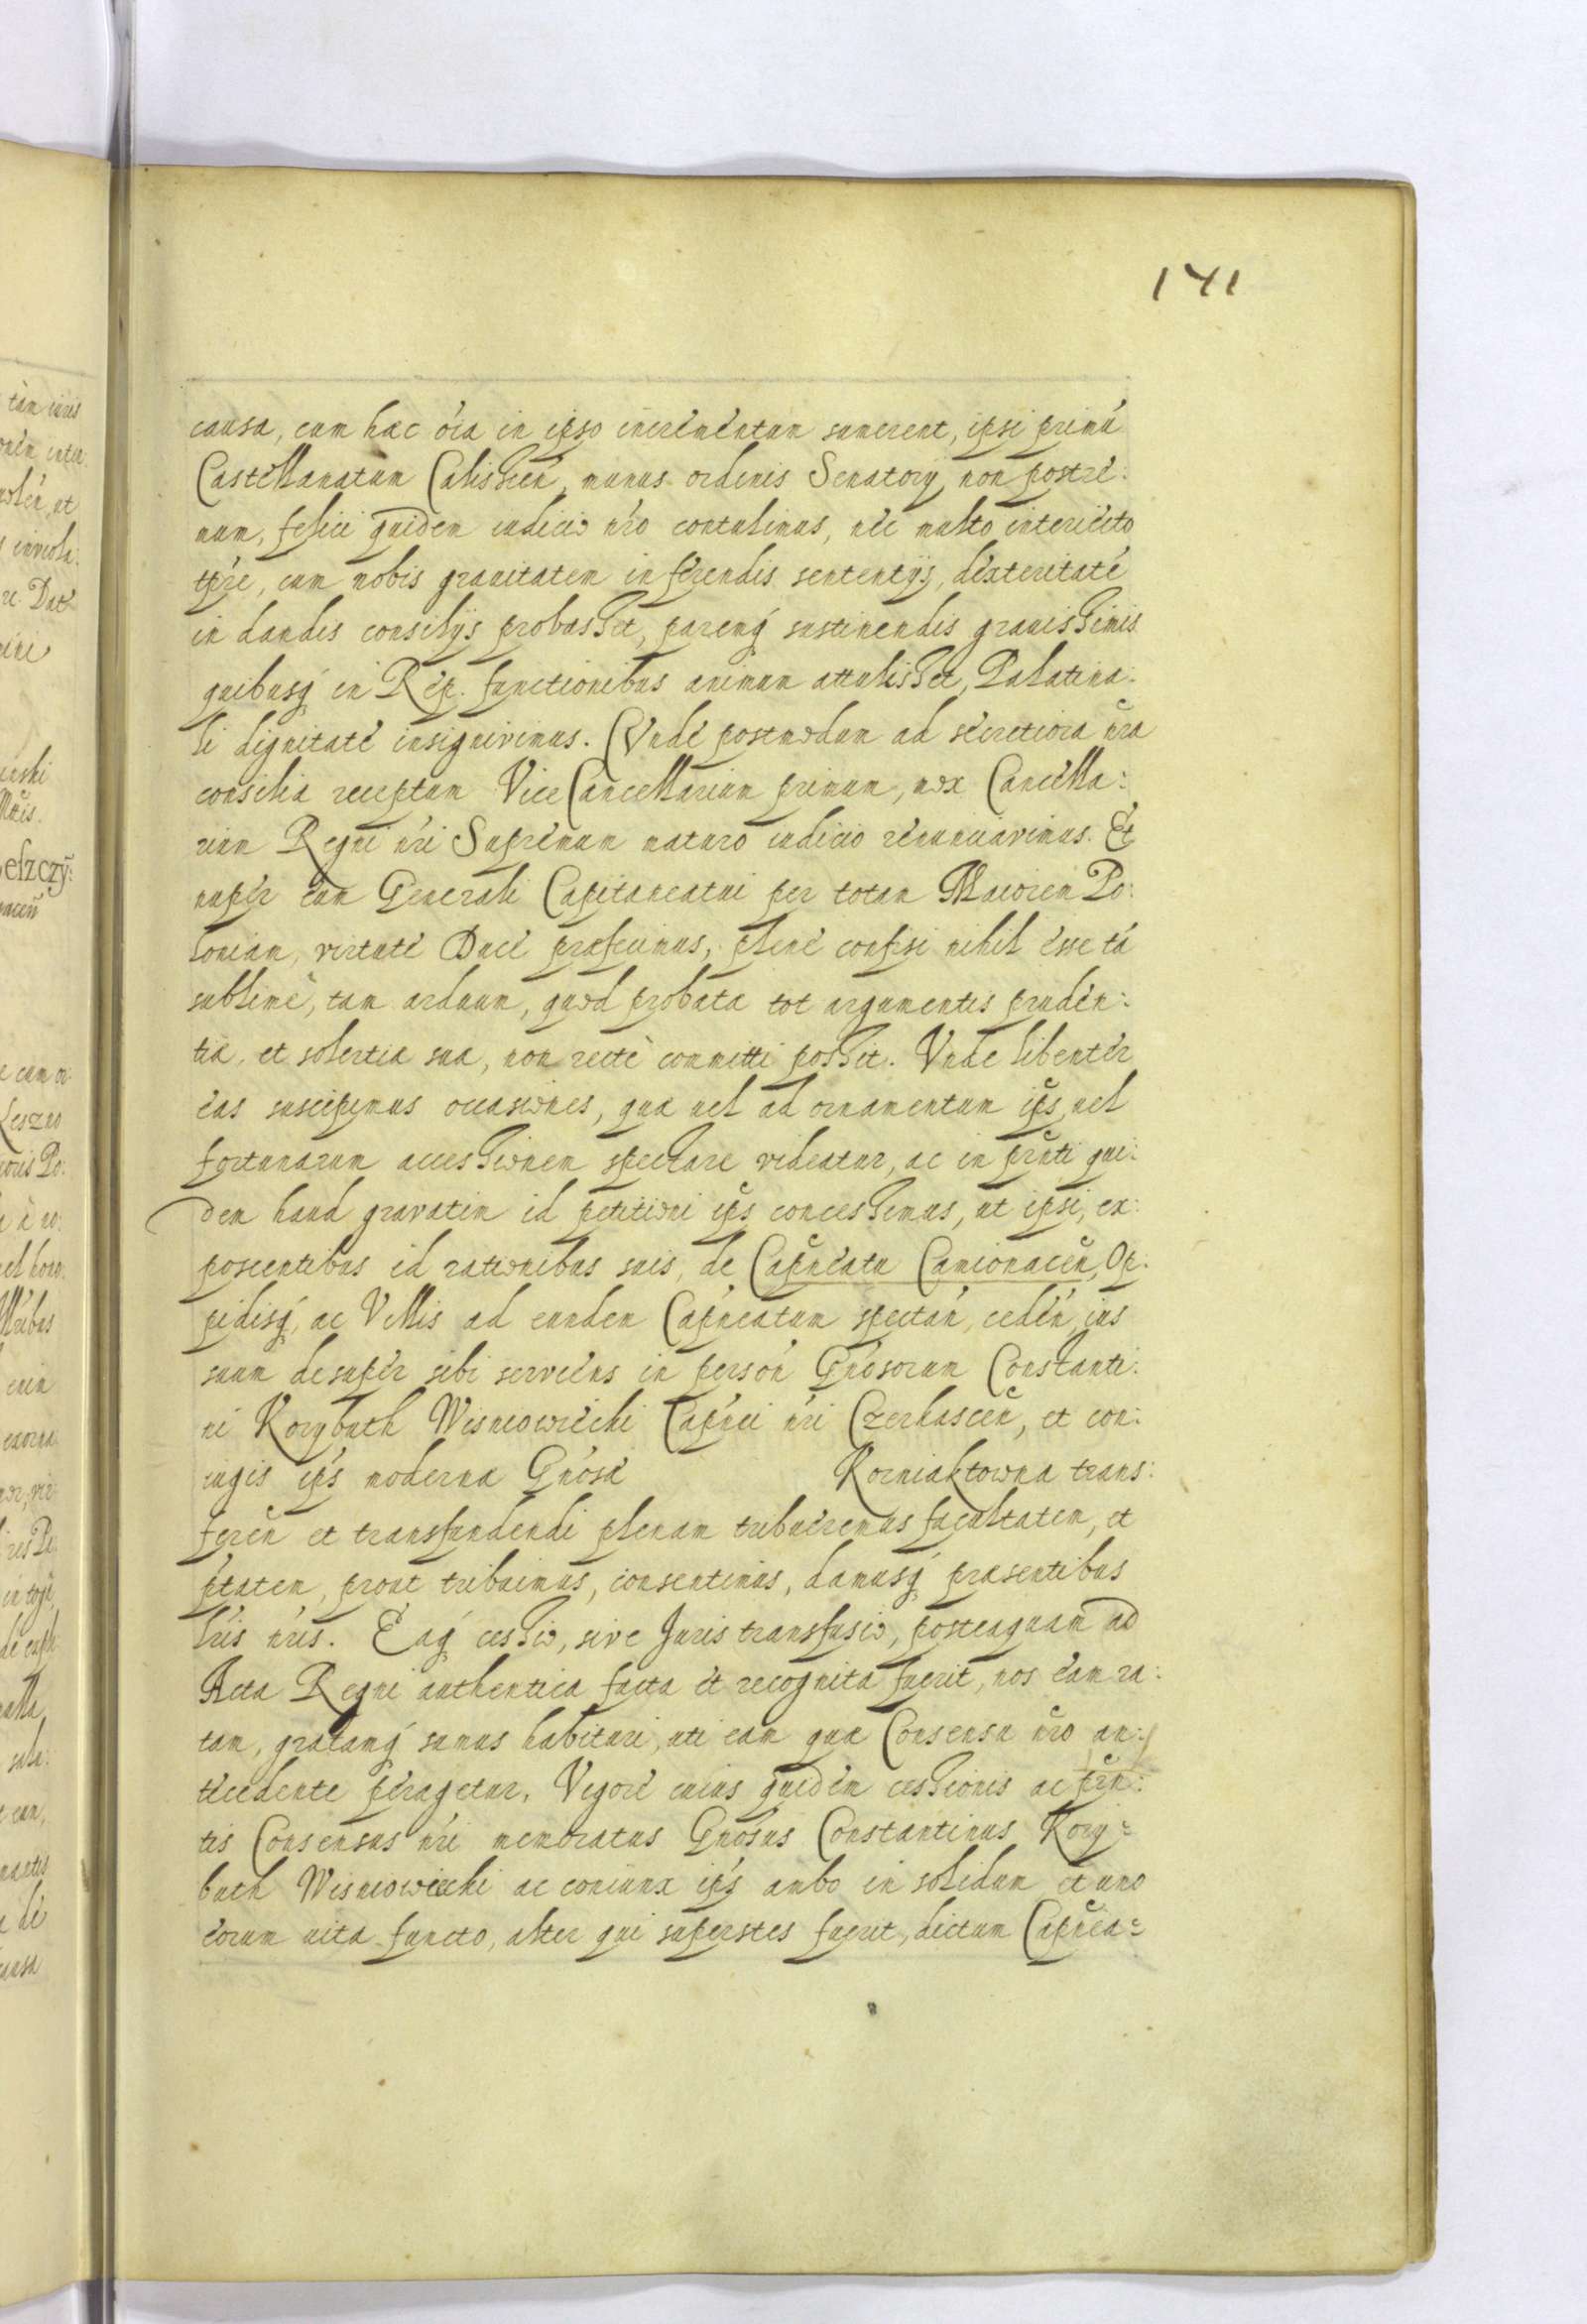 141
causa, cum hac óia in ipso incrementum sumerent, ipsi primú
Castellanatum Calissień, munus ordinis Senatorij non postre:
mum, felici quidem iudicio nŕo contulimus, nec multo interiecto
tṕre, cum nobis grauitatem in ferendis sententijs, dexteritaté
in dandis consilijs probasset, paremq́ sustinendis grauissimis
quibusq́ in Rep. functionibus animum attulisset, Palatina:
li dignitate insignivimus. Unde postmodum ad secretiora nr̃a
consilia receptum ViceCancellarium primum, mox Cancella:
rium Regni nŕi Supremum maturo iudicio renunciavimus. Et
nuper eum Generali Capitaneatui per totam Maiorem Po:
loniam, virtute Duce praefecimus, plene confisi nihil esse tá
sublime, tam arduum, quod probata tot argumentis pruden:
tia, et solertia sua, non recte committi possit. Vnde libenter
eas suscipimus occasiones, qua uel ad ornamentum ips̃, uel
fortunarum accessionem spectare videatur, ac in prñti qui:
dem haud gravatim id petitioni ips̃ concessimus, ut ipsi, ex:
poscentibus id rationibus suis, de Capñeatu Camionaceñ, Op:
pidisq́, ac Villis ad eundem Capńeatum spectań, cedeń, ius
suum desuper sibi serviens in persoń Gńosorum Constanti:
ni Korybuth Wisniowiecki Capńei nŕi Czerkasceñ, et con:
iugis ipś moderna Gńosa Korniaktowna trans:
fereñ et transfundendi plenam tribueremus facultatem, et
ptatem, prout tribuimus, consentimus, damusq́ praesentibus
lŕis nŕis. Eaq́ cessio, sive Juris transfusio, posteaquam ad
Acta Regni authentica facta et recognita fuerit, nos eam ra:
tam, gratamq́ sumus habituri, uti eam qua Consensu nr̃o an:
tecedente peragetur. Vigore cuius quidem cessionis ac prñ:
tis Consensus nŕi memoratus Gnosus Constantinus Kory:
buth Wisniowiecki ac coniunx ipś ambo in solidum et uno
eorum uita functo, alter qui superstes fuerit, dictum Capñea: